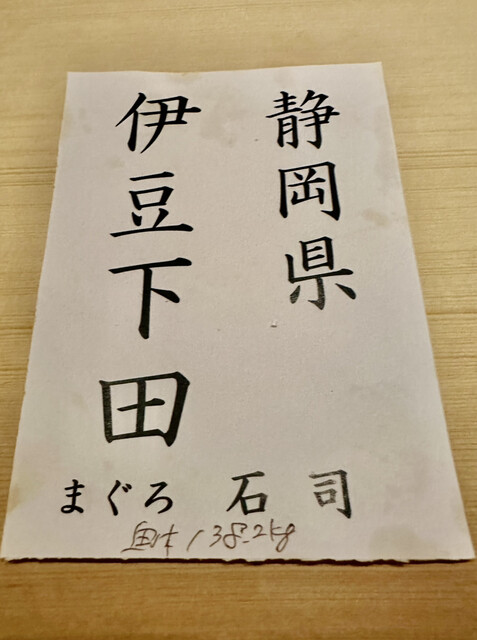 静岡県
伊豆下田
まぐろ 石司
魚体 138.2kg